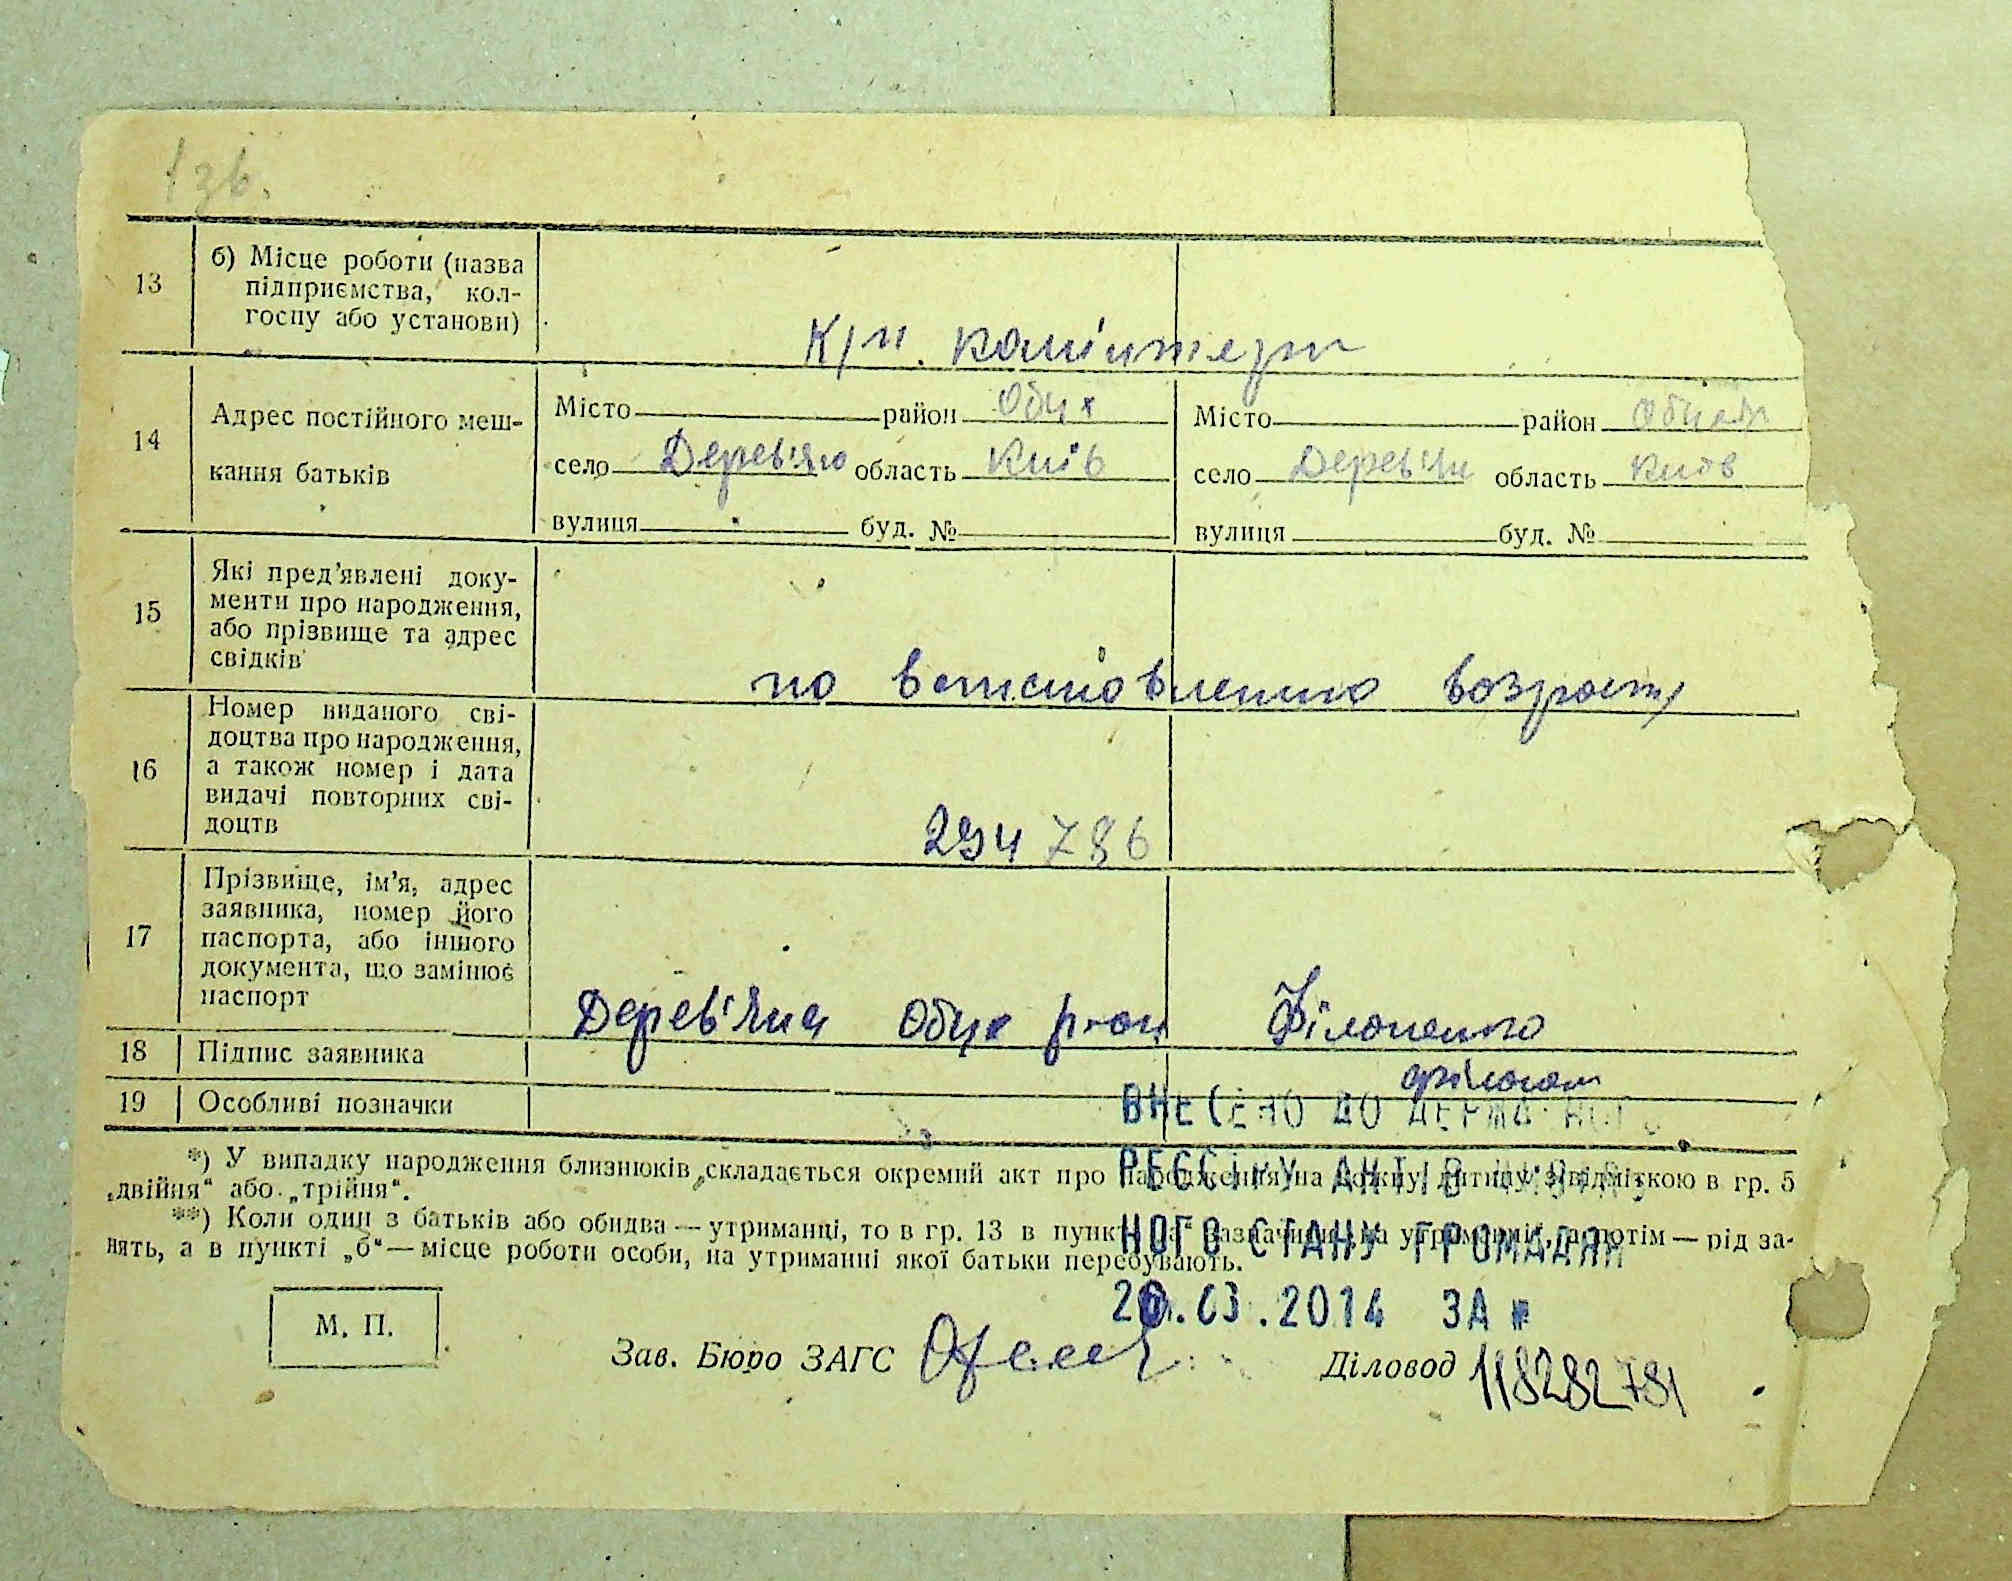 1 зв.
13
б) Місце роботи (назва
підприємства, кол-
госпу або установи)
К/п. комінтерн
14
Адрес постійного меш-
кання батьків
Місто район Обух
село Дерев'яно область Київ
вулиця буд. №
Місто район Обухов
село Дерев'ян область Київ
вулиця буд. №
15
Які пред'явлені доку-
менти про народження,
або прізвище та адрес
свідків
по встановленню возрасту
16
Номер виданого сві-
доцтва про народження,
а також номер і дата
видачі повторних сві-
доцтв
294786
17
Прізвище, ім'я, адрес
заявника, номер його
паспорта, або іншого
документа, що замінює
паспорт
Дерев'яна Обух р-он Філоненко
18 Підпис заявника
19 Особливі позначки
ВНЕСЕНО ДО ДЕРЖАВНОГО
РЕЄСТРУ АКТІВ ЦИВІЛЬ
НОГО СТАНУ ГРОМАДЯН
20.03.2014 ЗА №
118282781
*) У випадку народження близнюків, складається окремий акт про народження на кожну дитину з відміткою в гр. 5
„двійня“ або „трійня“.
**) Коли один з батьків або обидва — утриманці, то в гр. 13 в пункті „а“ зазначити „на утриманні“, а потім — рід за-
нять, а в пункті „б“ — місце роботи особи, на утриманні якої батьки перебувають.
М. П.
Зав. Бюро ЗАГС
Діловод